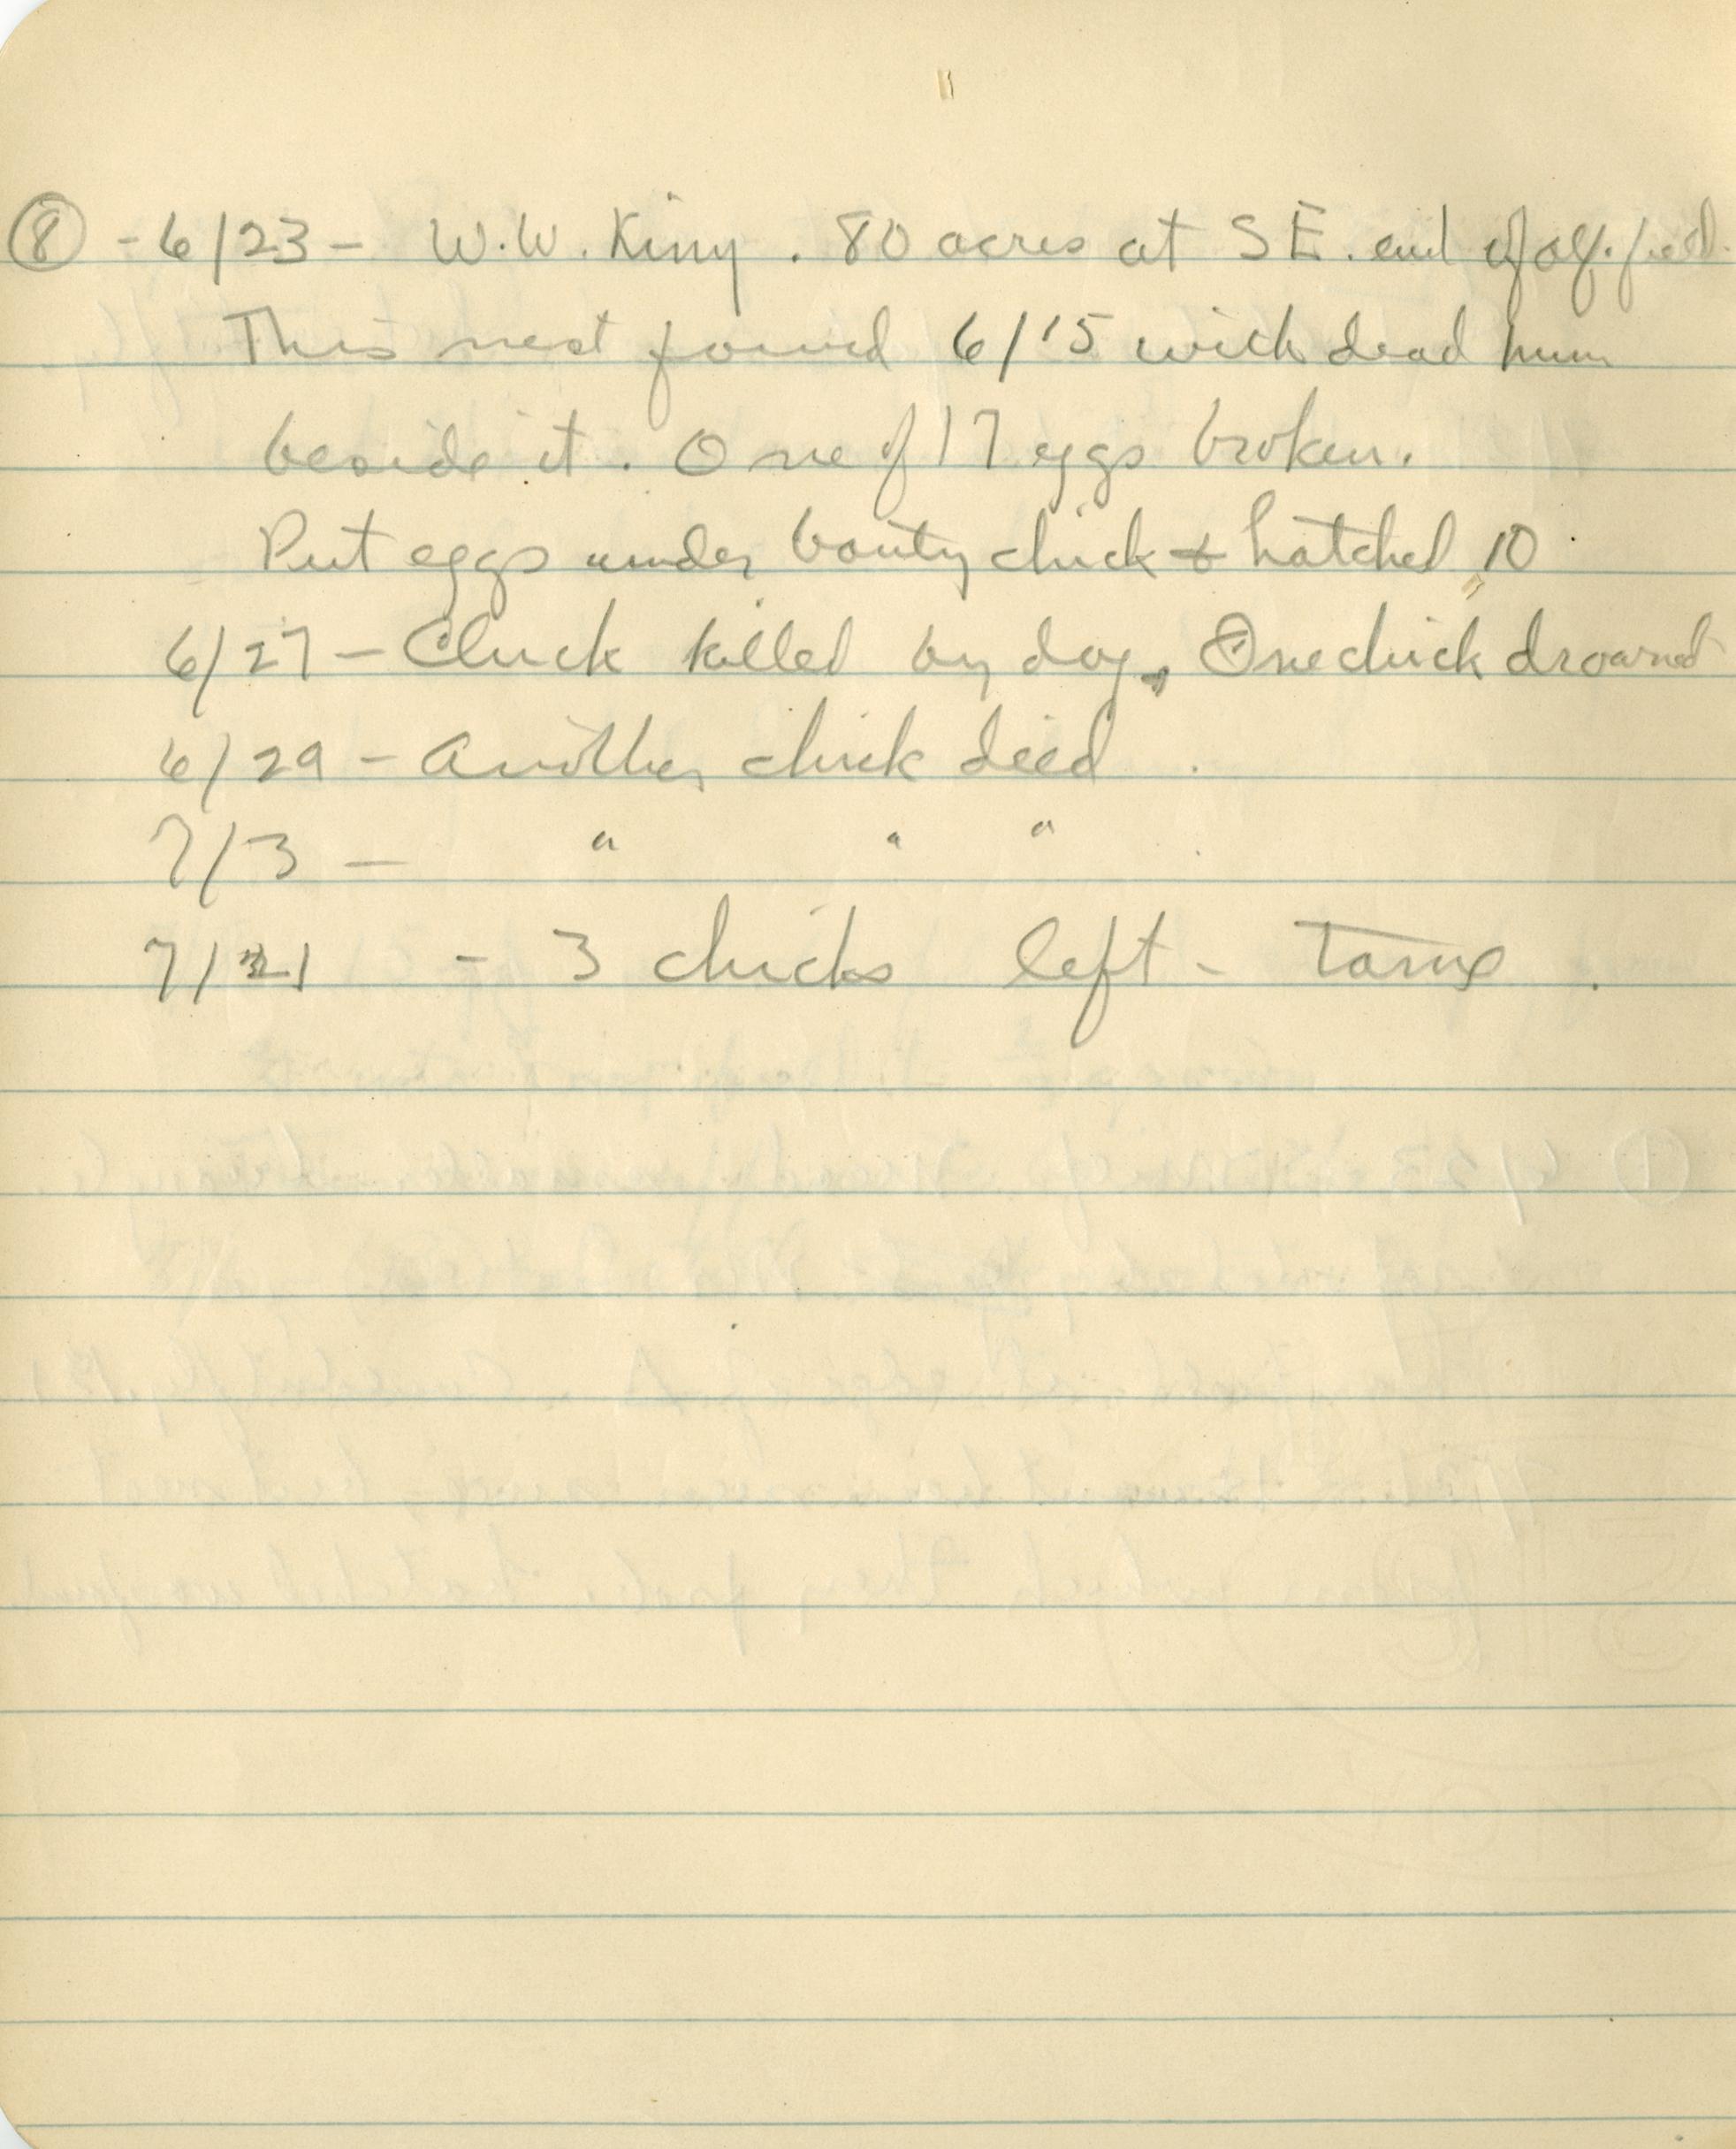 ⑧ - 6/23 - W.W. King. 80 acres at SE. end of alf. field.
This nest found 6/15 with dead hen
beside it. One of 17 eggs broken.
Put eggs under banty cluck & hatched 10.
6/27 - Cluck killed by dog. One chick drowned
6/29 - Another chick died.
7/3 - " " "
7/21 - 3 chicks left - tame.